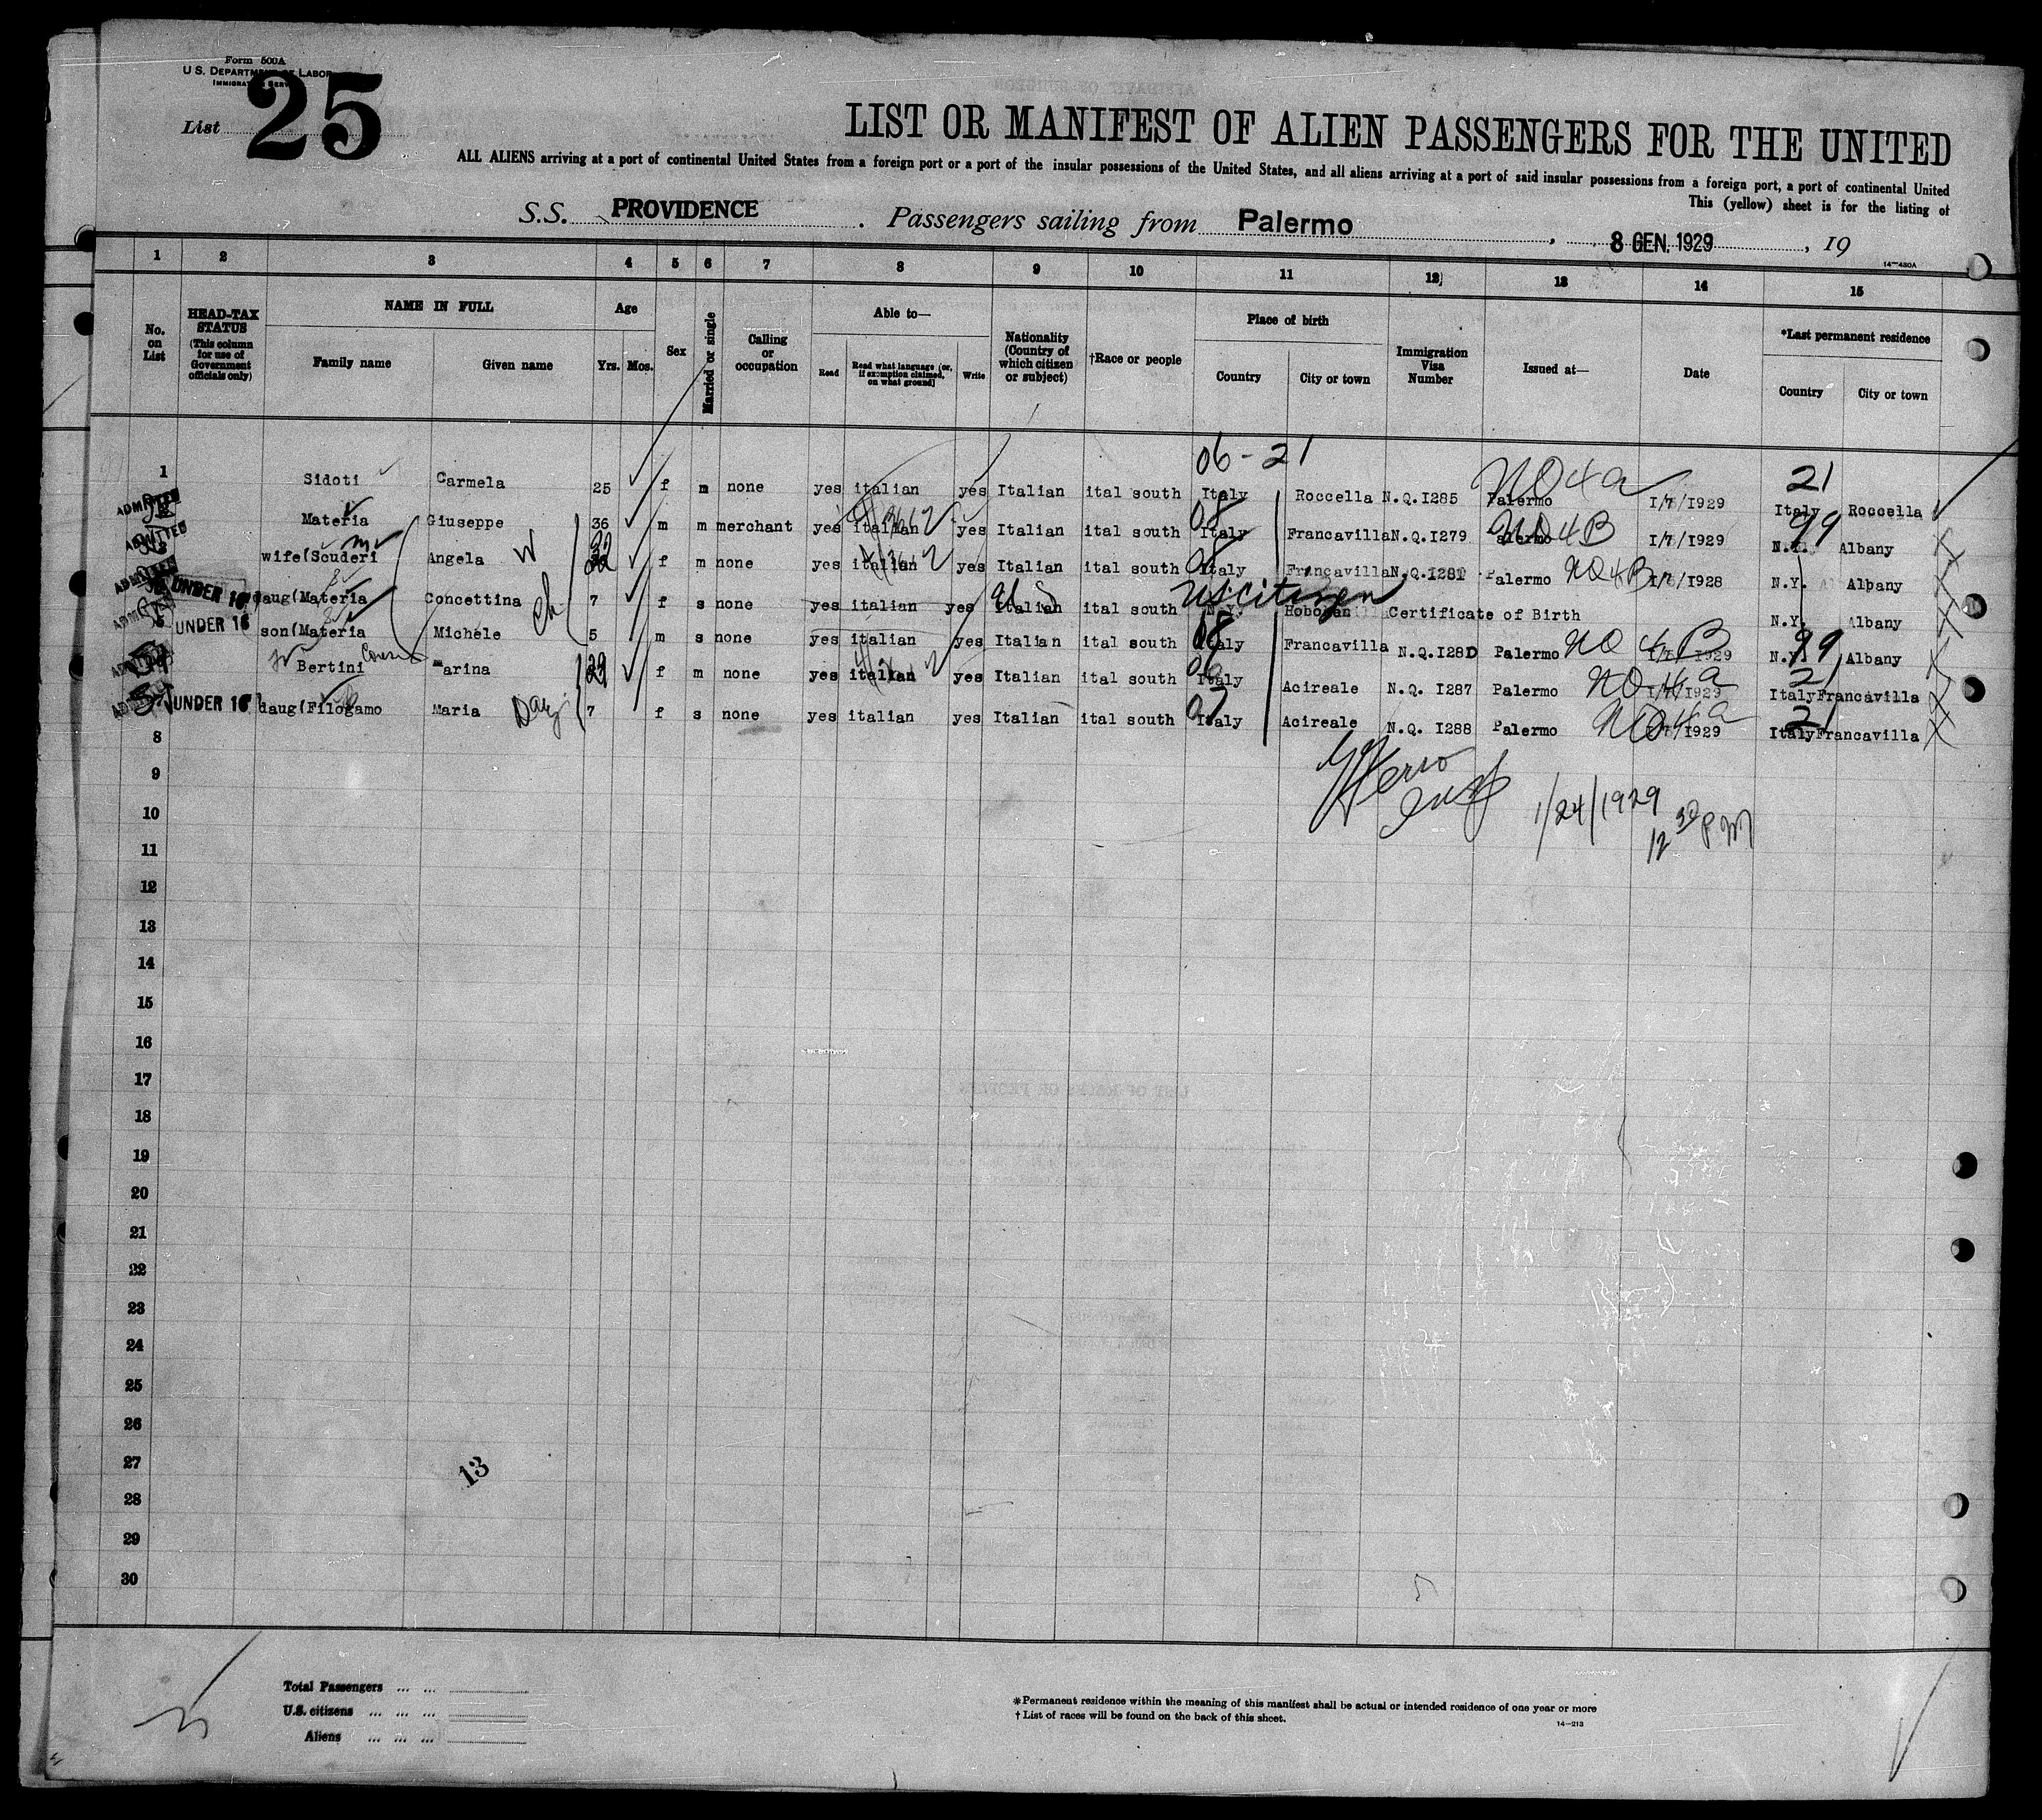 Form 500A
U.S. DEPARTMENT OF LABOR
IMMIGRATION SERVICE
List 25
LIST OR MANIFEST OF ALIEN PASSENGERS FOR THE UNITED
ALL ALIENS arriving at a port of continental United States from a foreign port or a port of the insular possessions of the United States, and all aliens arriving at a port of said insular possessions from a foreign port, a port of continental United
This (yellow) sheet is for the listing of
S.S. PROVIDENCE. Passengers sailing from Palermo, 8 GEN. 1929, 19
14-480A
1 2 3 4 5 6 7 8 9 10 11 12 13 14 15
No. on List
HEAD-TAX STATUS (This column for use of Government officials only)
NAME IN FULL Family name Given name
Age Yrs. Mos.
Sex
Married or single
Calling or occupation
Able to— Read Read what language [or, if exemption claimed, on what ground] Write
Nationality (Country of which citizen or subject)
†Race or people
Place of birth Country City or town
Immigration Visa Number
Issued at—
Date
*Last permanent residence Country City or town
06-21
1 Sidoti Carmela 25 f m none yes italian yes Italian ital south Italy Roccella N.Q.I285 Palermo NQ4a I/7/I929 21 Italy Roccella
ADMITTED Materia Giuseppe 36 m m merchant yes italian yes Italian ital south 08 Italy Francavilla N.Q.I279 Palermo NQ4B I/7/I929 99 N.Y. Albany
ADMITTED wife(Scuderi Angela W f m none yes italian yes Italian ital south 08 Italy Francavilla N.Q.I28I Palermo NQ4B I928 N.Y. Albany
ADMITTED UNDER 16 daug(Materia Concettina ch 7 f s none yes italian yes Italian ital south US citizen N.Y. Hoboken Certificate of Birth N.Y. Albany
ADMITTED UNDER 16 son(Materia Michele 5 m s none yes italian yes Italian ital south 08 Italy Francavilla N.Q.I28D Palermo NQ4B I929 99 N.Y. Albany
Bertini Cousin Marina 29 f m none yes italian yes Italian ital south 06 Italy Acireale N.Q. I287 Palermo NQ4a I929 21 Italy Francavilla
7 UNDER 16 daug(Filogamo Maria Daug 7 f s none yes italian yes Italian ital south 07 Italy Acireale N.Q. I288 Palermo NQ4a I929 21 Italy Francavilla
8
9
1/24/1929
10
12 30 PM
11
12
13
14
15
16
17
18
19
20
21
22
23
24
25
26
27
13
28
29
30
Total Passengers ... ...
U.S. citizens ... ... ...
Aliens ... ... ...
*Permanent residence within the meaning of this manifest shall be actual or intended residence of one year or more
† List of races will be found on the back of this sheet.
14-213